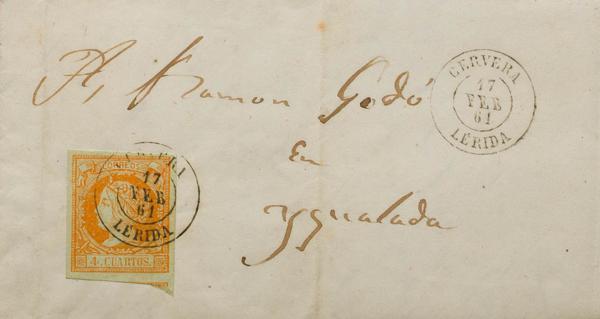 A, Ramon Godó
En
Ygualada
CERVERA
17
FEB
61
LÉRIDA
CERVERA
17
FEB
61
LÉRIDA
CORREOS
4 CUARTOS.